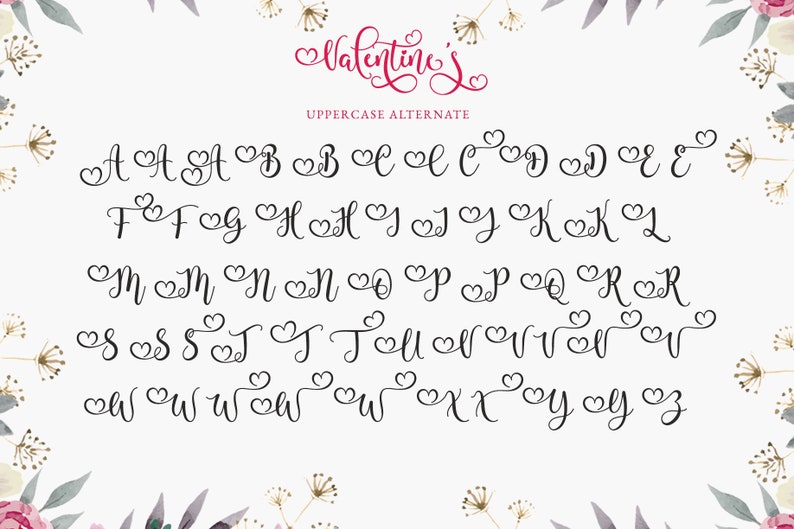 Valentine's
UPPERCASE ALTERNATE
A A A B B C C C D D E E
F F G H H I I J K K L
M M N N O P P Q R R
S S S T T T U V V V V V
W W W W W X X Y Y Z